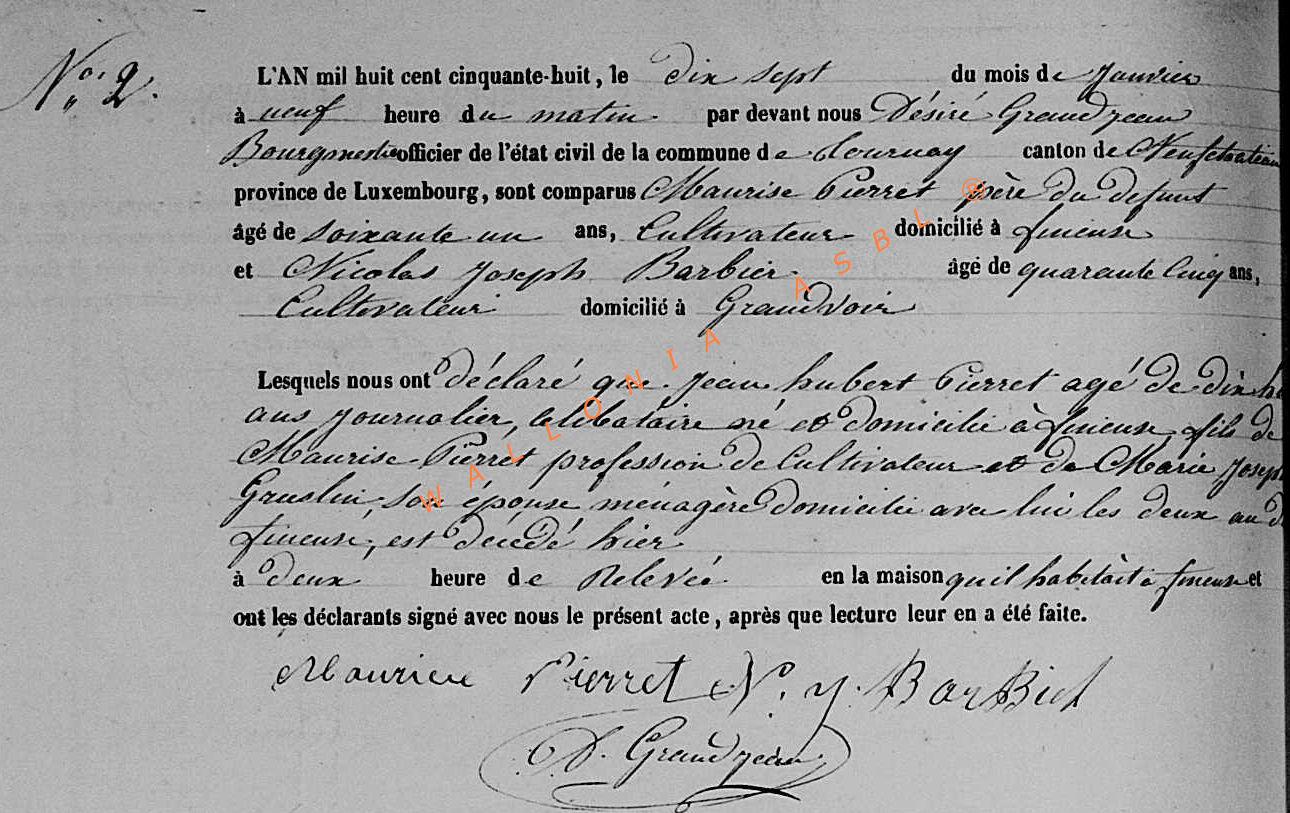 No. 2.
L'AN mil huit cent cinquante-huit, le dix sept du mois de Janvier
à neuf heure du matin par devant nous Désiré Grandjean
Bourgmestre officier de l'état civil de la commune de Tournay canton de Neufchateau
province de Luxembourg, sont comparus Maurise Pierret père du defunt
âgé de soixante un ans, Cultivateur domicilié à fineuse
et Nicolas Joseph Barbier âgé de quarante cinq ans,
Cultivateur domicilié à Grandvoir
Lesquels nous ont déclaré que Jean hubert Pierret agé de dix
ans journalier, celibataire né et domicilié à fineuse fils de
Maurise Pierret profession de Cultivateur et de Marie Joseph
Gruslin, son épouse ménagère domicilié avec lui les deux au
fineuse, est décédé hier
à deux heure de Relevée en la maison qu'il habitait à fineuse et
ont les déclarants signé avec nous le présent acte, après que lecture leur en a été faite.
Maurice Pierret N. J. BarBier
D. Grandjean
WALLONIA ASBL ®